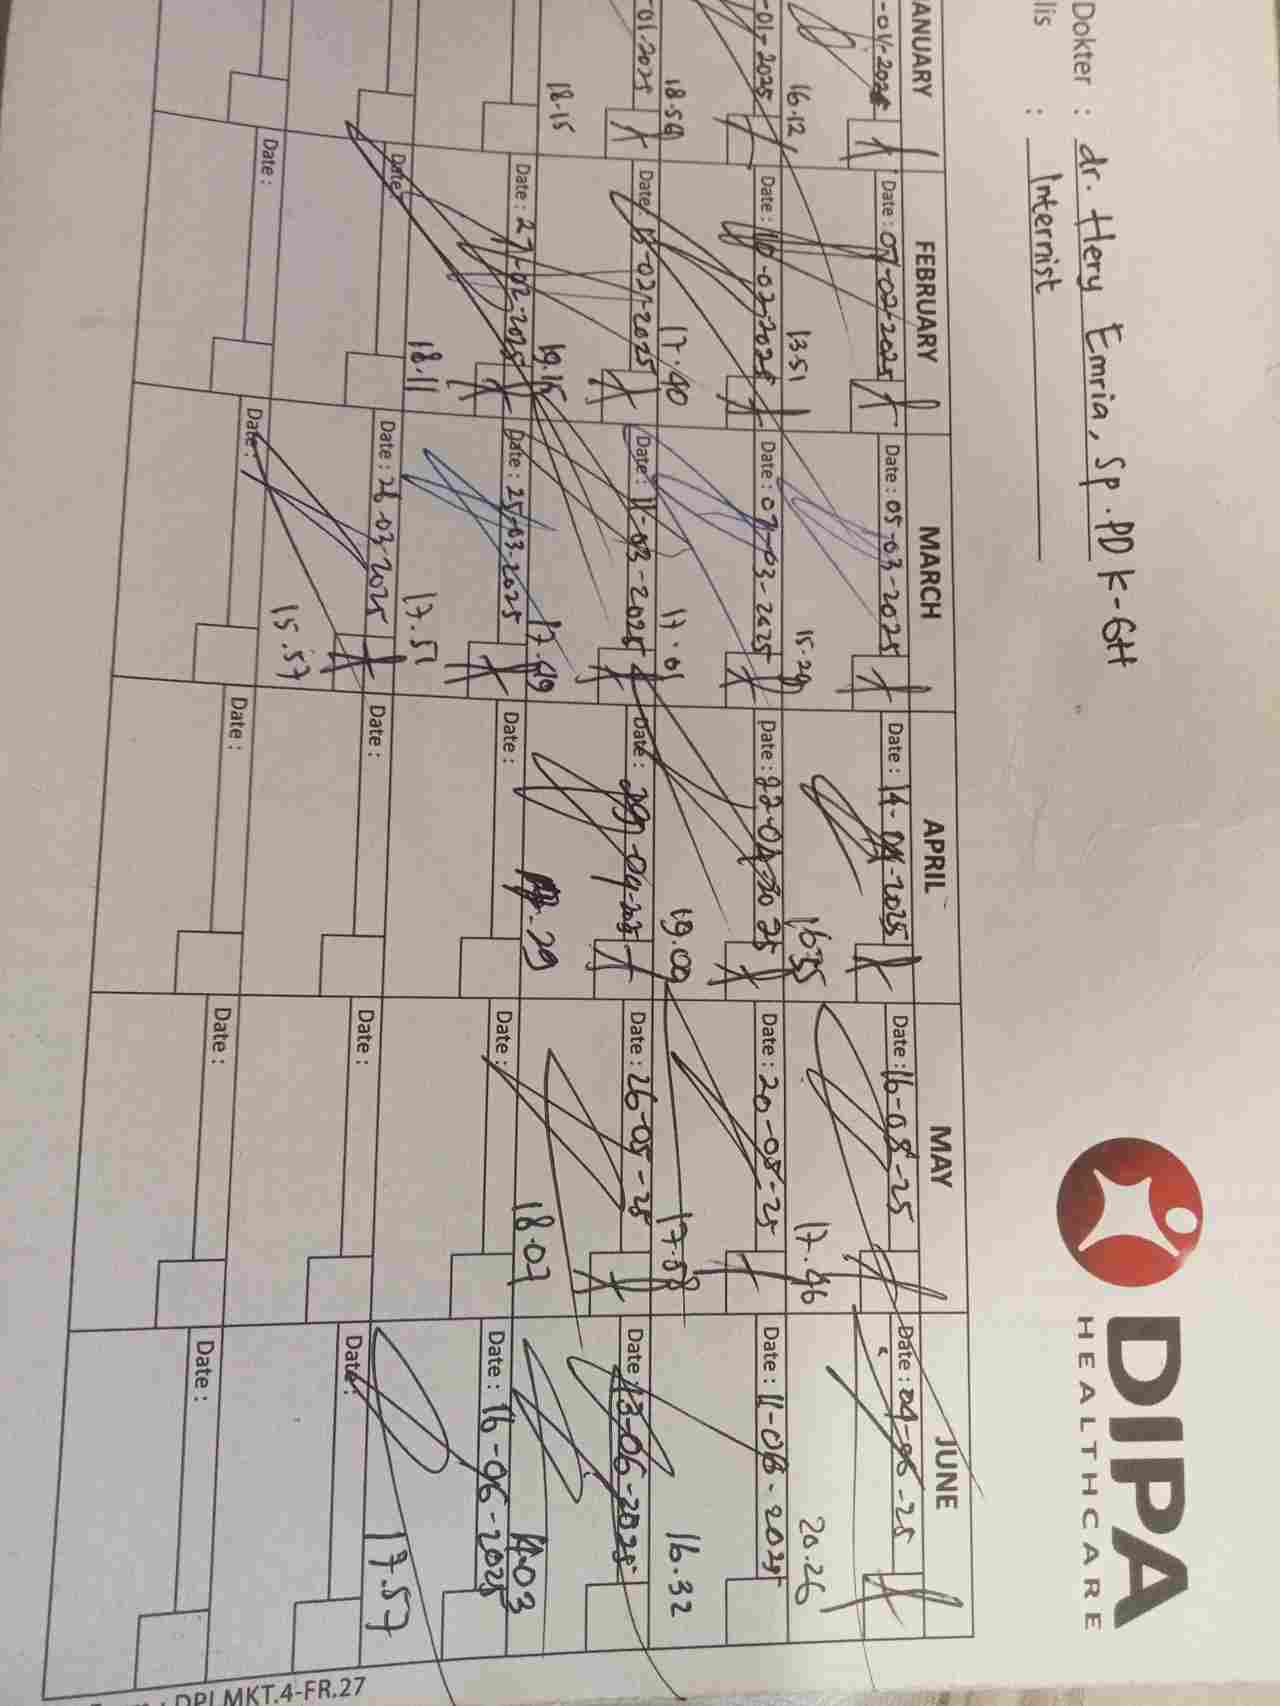 DIPA
HEALTHCARE
Dokter : dr. Hery Emria, Sp.PD K-GH
lis : Internist
ANUARY FEBRUARY MARCH APRIL MAY JUNE
-01-2025 Date : 07-02-2025 Date : 05-03-2025 Date : 14-04-2025 Date : 16-05-25 Date : 04-06-25
16.12 13.51 15.29 16.35 17.46 20.26
-01-2025 Date : 10-02-2025 Date : 07-03-2025 Date : 22-04-2025 Date : 20-05-25 Date : 11-06-2025
18.59 17.40 17.01 19.09 17.58 16.32
-01-2025 Date : 13-02-2025 Date : 11-03-2025 Date : 29-04-2025 Date : 26-05-25 Date : 13-06-2025
18.15 19.15 17.49 .29 18.07 14.03
Date : 27-02-2025 Date : 25-03-2025 Date : Date : Date : 16-06-2025
18.11 17.51 17.57
Date : Date : 26-03-2025 Date : Date : Date :
15.57
Date : Date : Date : Date : Date :
DPI.MKT.4-FR.27